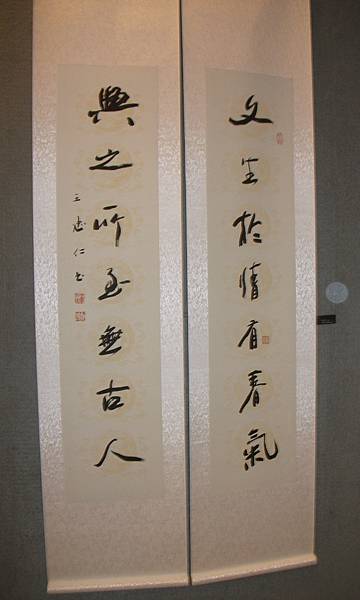 文生於情有春氣
興之所至無古人
王仁書